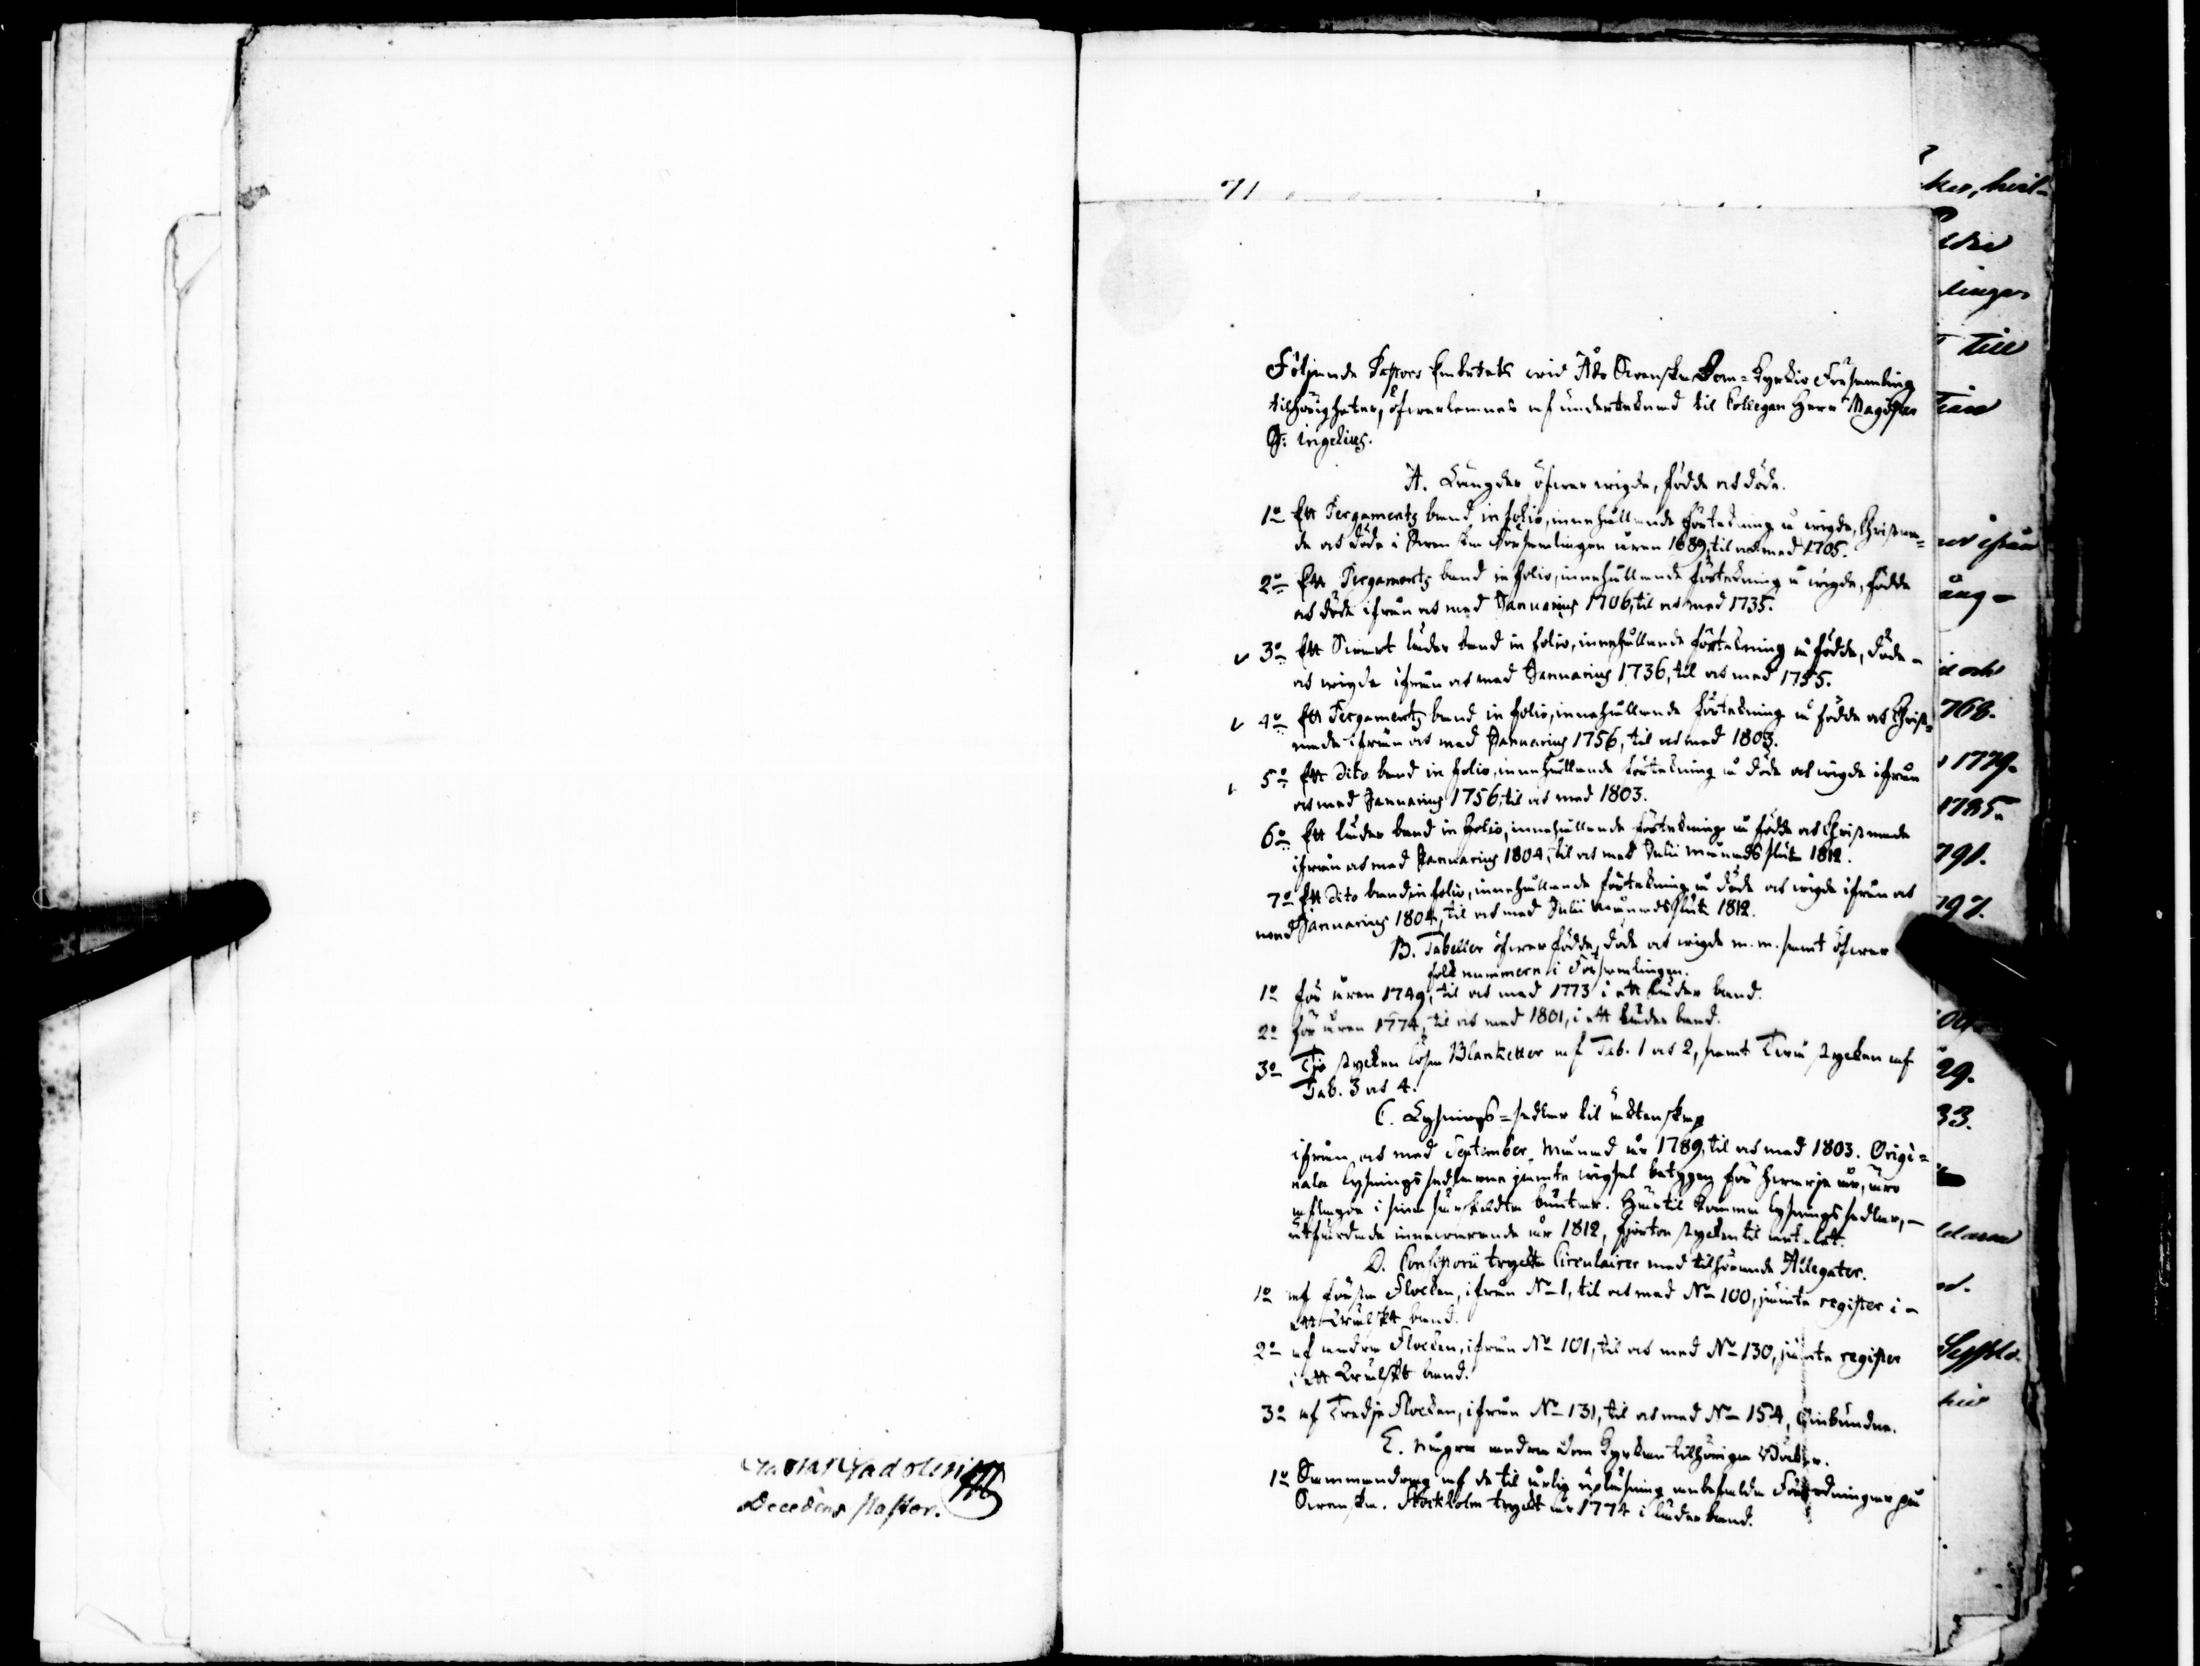 Gustaf Gadolin
Decedens Pastor.
71
Följande Pastors Embetets wid Åbo Swenska Dom=Kyrkio Församling
tilhörigheter, öfwerlemnas af undertecknad til Collegan Herr Magister
J: Ingelius.
A. Längder öfwer wigde, födde och döde.
1o Ett Pergaments band in folio, innehållande förtekning å wigde, Christna=
de och döde i Swenska Församlingen åren 1689, til och med 1705.
2o Ett Pergaments band in folio, innehållande förtekning å wigde, födde
och döde ifrån och med Januarius 1706, til och med 1735.
3o Ett Swart läder band in folio, innehållande förtekning å födde, döde
och wigde ifrån och med Januarius 1736, til och med 1755.
4o Ett Pergaments band in folio, innehållande förtekning å födde och Christ=
nade ifrån och med Januarius 1756, til och med 1803.
5o Ett dito band in folio, innehållande förtekning å döde och wigde ifrån
och med Januarius 1756, til och med 1803.
6o Ett läder band in folio, innehållande förtekning å födde och Christnade
ifrån och med Januarius 1804, til och med Julii månads slut 1812.
7o Ett dito band in folio, innehållande förtekning å döde och wigde ifrån och
med Januarius 1804, til och med Julii månads slut 1812.
B. Tabeller öfwer födde, döde och wigde m. m. samt öfwer
folknummern i Församlingen.
1o för åren 1749, til och med 1773 i ett läder band.
2o för åren 1774, til och med 1801, i ett läder band.
3o Tio stycken lösa Blanketter af Tab. 1 och 2, samt Twå stycken af
Tab. 3 och 4.
C. Lysnings=sedlar til äktenskap
ifrån och med September månad år 1789, til och med 1803. Origi=
nala lysningssedlarne jämte wigsel betygen för hwarje år, äro
aflagde i sina särskildta buntar. Härtil komma lysningssedlar,
utfärdade innewarande år 1812, fjorton stycken til antalet.
D. Consistorii tryckta Circulairer med tilhörande Allegater.
1o af första Flocken, ifrån No 1, til och med No 100, jämte register i
ett Skrälskt band.
2o af andra Flocken, ifrån No 101, til och med No 130, jämte register
i ett band.
3o af Tredje Flocken, ifrån No 131, til och med No 154, oinbundne.
E. Några andra Dom Kyrkan tilhöriga Böcker.
1o Sammandrag af de til årlig upläsning anbefalda Förordningar på
Swenska. Stockholm tryckt år 1774 i läderband.
ker, hvil-
till
ifrån
ång-
och
768.
1779.
1785.
791.
797.
29.
33.